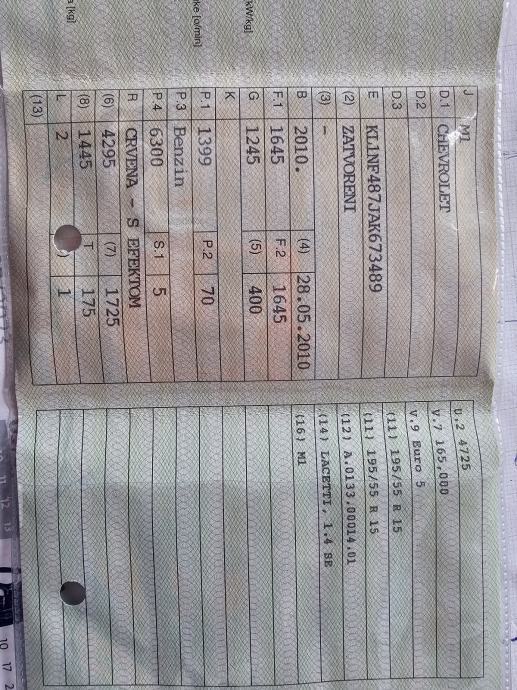 J M1
D.1 CHEVROLET
D.2
D.3
E KL1NF487JAK673489
(2) ZATVORENI
(3) -
B 2010. (4) 28.05.2010
F.1 1645 F.2 1645
G 1245 (5) 400
K
P.1 1399 P.2 70
P.3 Benzin
P.4 6300 S.1 5
R CRVENA - S EFEKTOM
(6) 4295 (7) 1725
(8) 1445 T 175
L 2 1
(13)
kW/kg]
[o/min]
[kg]
U.2 4725
V.7 165,000
V.9 Euro 5
(11) 195/55 R 15
(11) 195/55 R 15
(12) A.0133.00014.01
(14) LACETTI, 1.4 SE
(16) M1
11 12 13
10 17